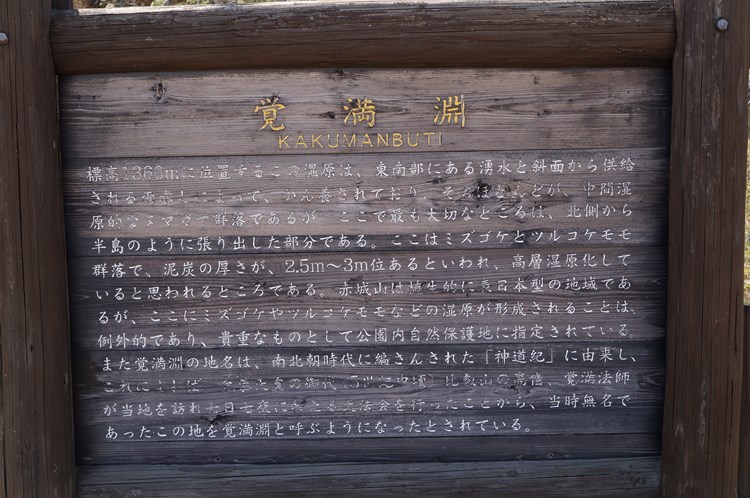 覚満淵
KAKUMANBUTI
標高1360mに位置するこの湿原は、東南部にある湧水と斜面から供給
される によって、かん養されており、そのほとんどが、中間湿
原的なヌマガヤ群落であるが、ここで最も大切なところは、北側から
半島のように張り出した部分である。ここはミズゴケとツルコケモモ
群落で、泥炭の厚さが、2.5m〜3m位あるといわれ、高層湿原化して
いると思われるところである。赤城山は植生的に 日本型の地域であ
るが、ここにミズゴケやツルコケモモなどの湿原が形成されることは、
例外的であり、貴重なものとして公園内自然保護地に指定されている。
また覚満淵の地名は、南北朝時代に編さんされた「神道紀」に由来し、
これによれば、 の御代 比叡山の高僧、覚満法師
が当地を訪れ、 法会を行ったことから、当時無名で
あったこの地を覚満淵と呼ぶようになったとされている。